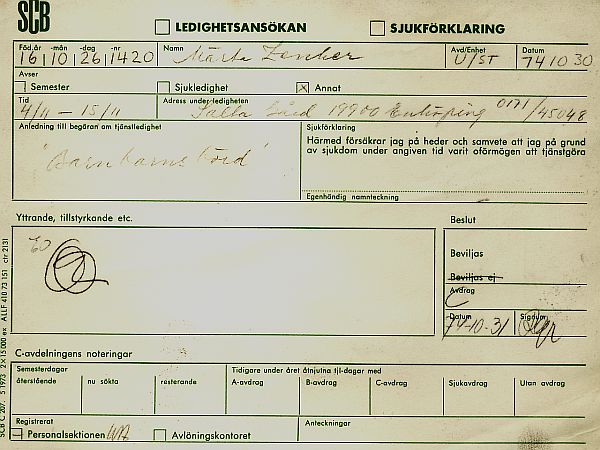 SCB
LEDIGHETSANSÖKAN SJUKFÖRKLARING
Föd.år -mån -dag -nr Namn Avd/Enhet Datum
16 10 26 1420 Märta Zenker U/ST 74 10 30
Avser
Semester Sjukledighet Annat
Tid Adress under ledigheten
4/11 – 15/11 Salla Gård 19900 Enköping 0171/45048
Anledning till begäran om tjänstledighet Sjukförklaring
"Barnbarnsbörd"
Härmed försäkrar jag på heder och samvete att jag på grund
av sjukdom under angiven tid varit oförmögen att tjänstgöra
Egenhändig namnteckning
Yttrande, tillstyrkande etc. Beslut
Beviljas
Beviljas ej
Avdrag
C
Datum Signum
74-10-31
C-avdelningens noteringar
Semesterdagar Tidigare under året åtnjutna tjl-dagar med
återstående nu sökta resterande A-avdrag B-avdrag C-avdrag Sjukavdrag Utan avdrag
Registrerat Anteckningar
Personalsektionen Avlöningskontoret
SCB C 207. 5 1973 2×15 000 ex ALLF 410 73 151 ctr 2131